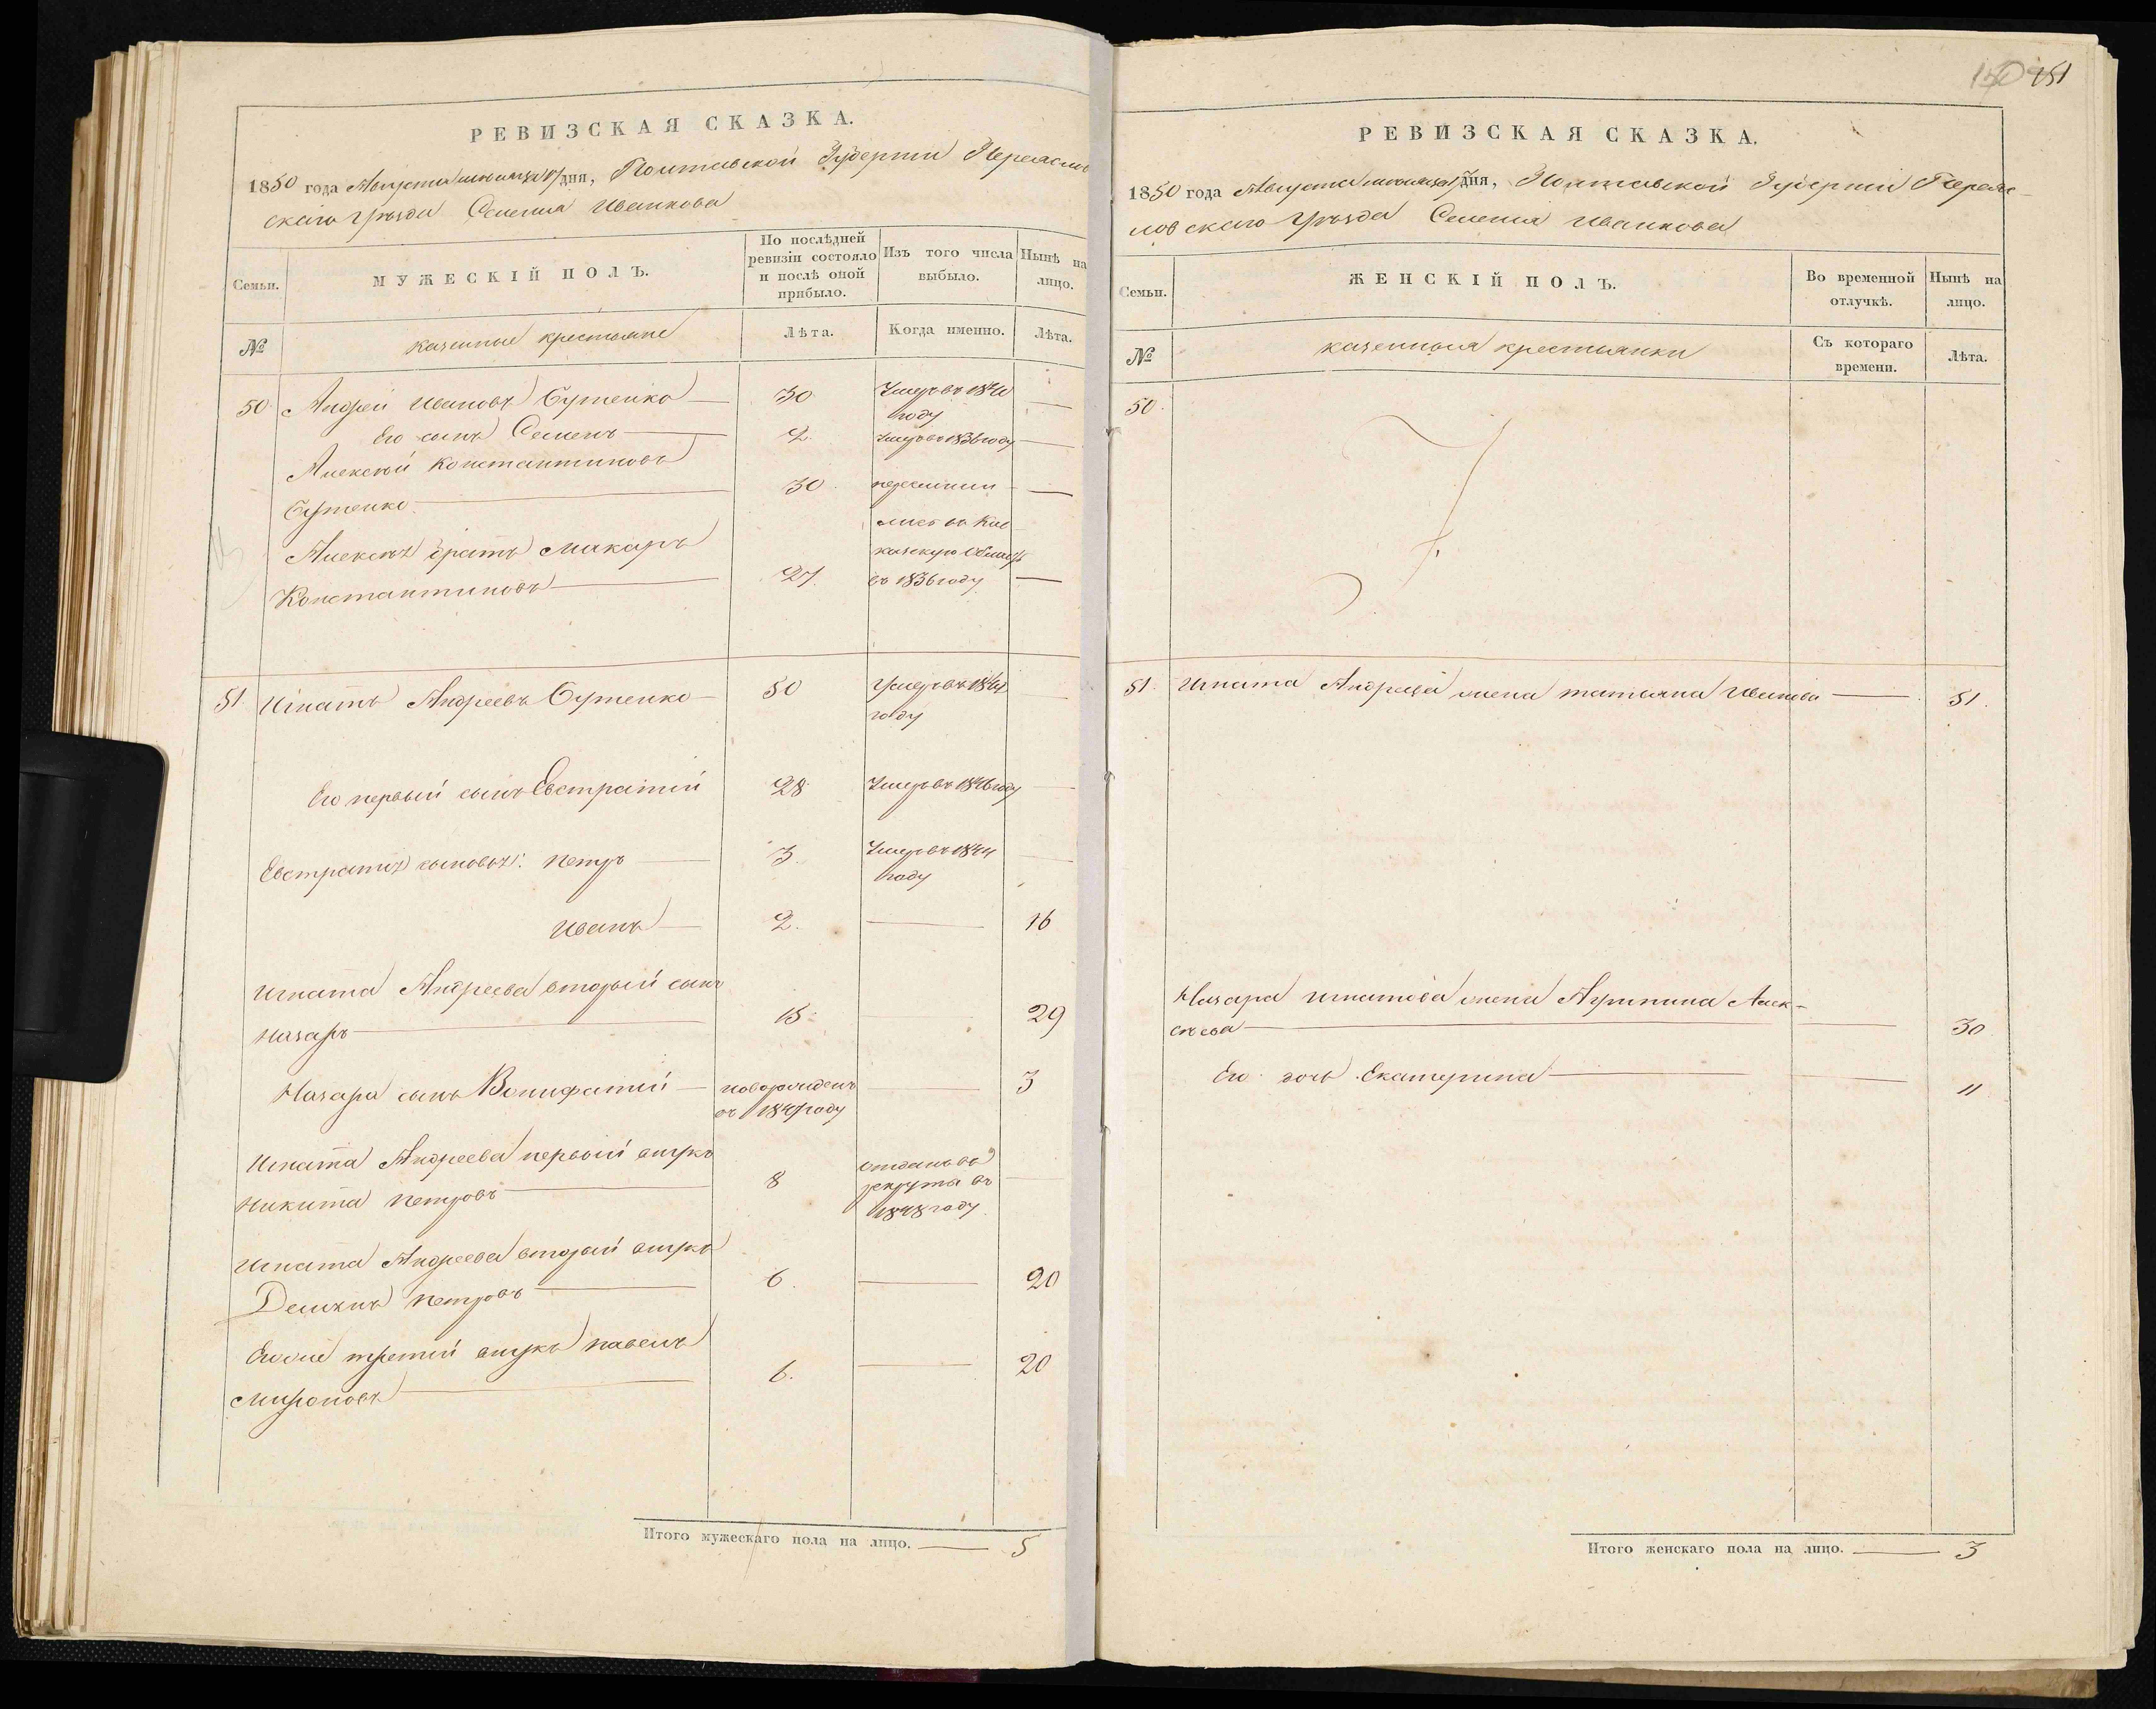 РЕВИЗСКАЯ СКАЗКА.
1850 года Августа дня, Полтавской Губерніи Переяслов
скаго Уѣзда Селенія Иванкова
Семьи.
МУЖЕСКІЙ ПОЛЪ.
По послѣдней
ревизіи состояло
и послѣ оной
прибыло.
Изъ того числа
выбыло.
Нынѣ на
лицо.
№
казенные крестьяне
Лѣта.
Когда именно.
Лѣта.
50 Андрей Ивановъ Бутенко — 30 Умеръ въ 1840 —
году
Его сынъ Семенъ — 2. Умеръ въ 1836 году —
Алексѣй Константиновъ
Бутенко — 30 —
Алексѣя братъ Макаръ
Константиновъ — 27. въ 1836 году —
51 Игнатъ Андреевъ Бутенко — 50 Умеръ въ —
году
Его первый сынъ Евстратій 28 Умеръ въ 1846 году —
Евстратія сыновья: Петръ — 3. Умеръ въ 1844 —
году
Иванъ — 2. — 16
Игната Андреева вторый сынъ
Назаръ — 15 — 29
Назара сынъ Вонифатій — новорожденъ — 3
въ 1847 году
Игната Андреева первый внукъ
Никита Петровъ — 8 отданъ въ —
рекруты въ
1848 году
Игната Андреева вторый внукъ
Демянъ Петровъ — 6. — 20
Его же третій внукъ Павелъ
Мироновъ — 6. — 20
Итого мужескаго пола на лицо. — 5
151
РЕВИЗСКАЯ СКАЗКА.
1850 года Августа дня, Полтавской Губерніи Переяс-
ловскаго Уѣзда Селенія Иванкова
Семьи.
ЖЕНСКІЙ ПОЛЪ.
Во временной
отлучкѣ.
Нынѣ на
лицо.
№
казенныя крестьянки
Съ котораго
времени.
Лѣта.
50.
51. Игната Андреева жена Татьяна Иванова — 51.
Назара Игнатова жена Агрипина Алек-
сѣева — — 30
Его дочь Екатерина — — 11
Итого женскаго пола на лицо. — 3